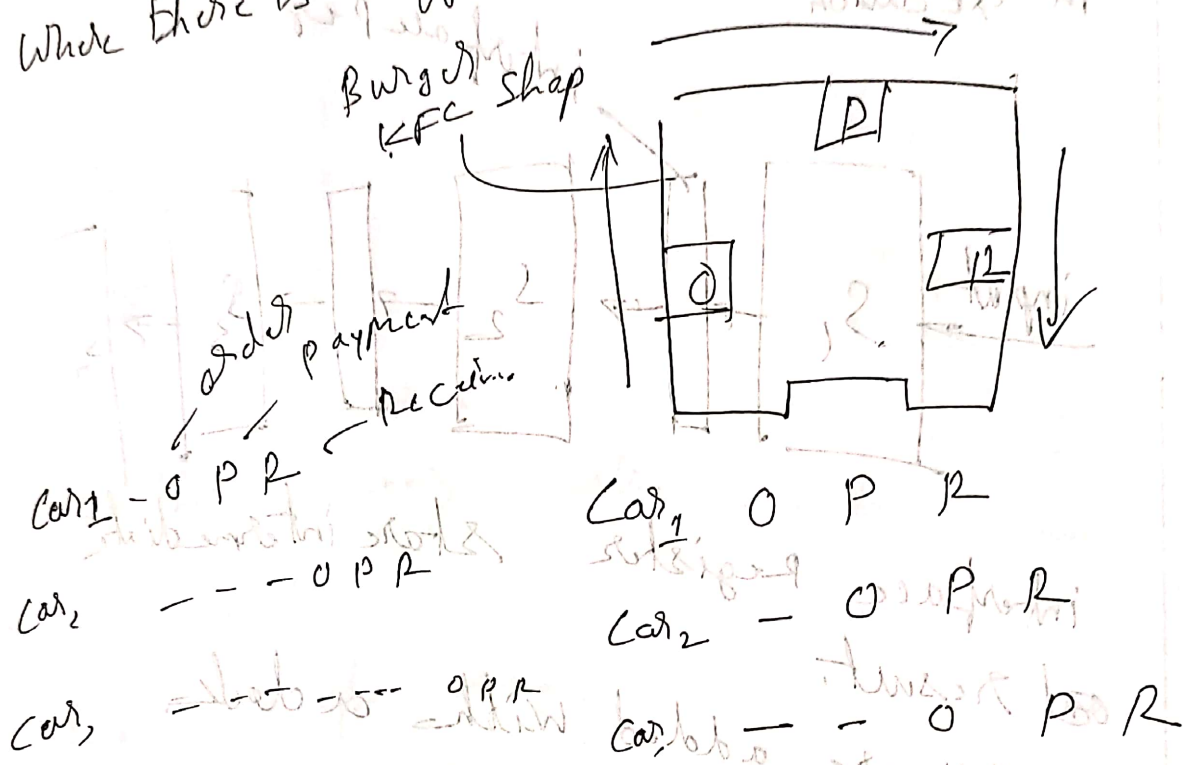 Where there is
Burger
KFC Shop
P
O
R
order
payment
Car1 - O P R
Car2 - - - O P R
Car3 - - - - --- O P R
Car1 O P R
Car2 - O P R
Car - - O P R